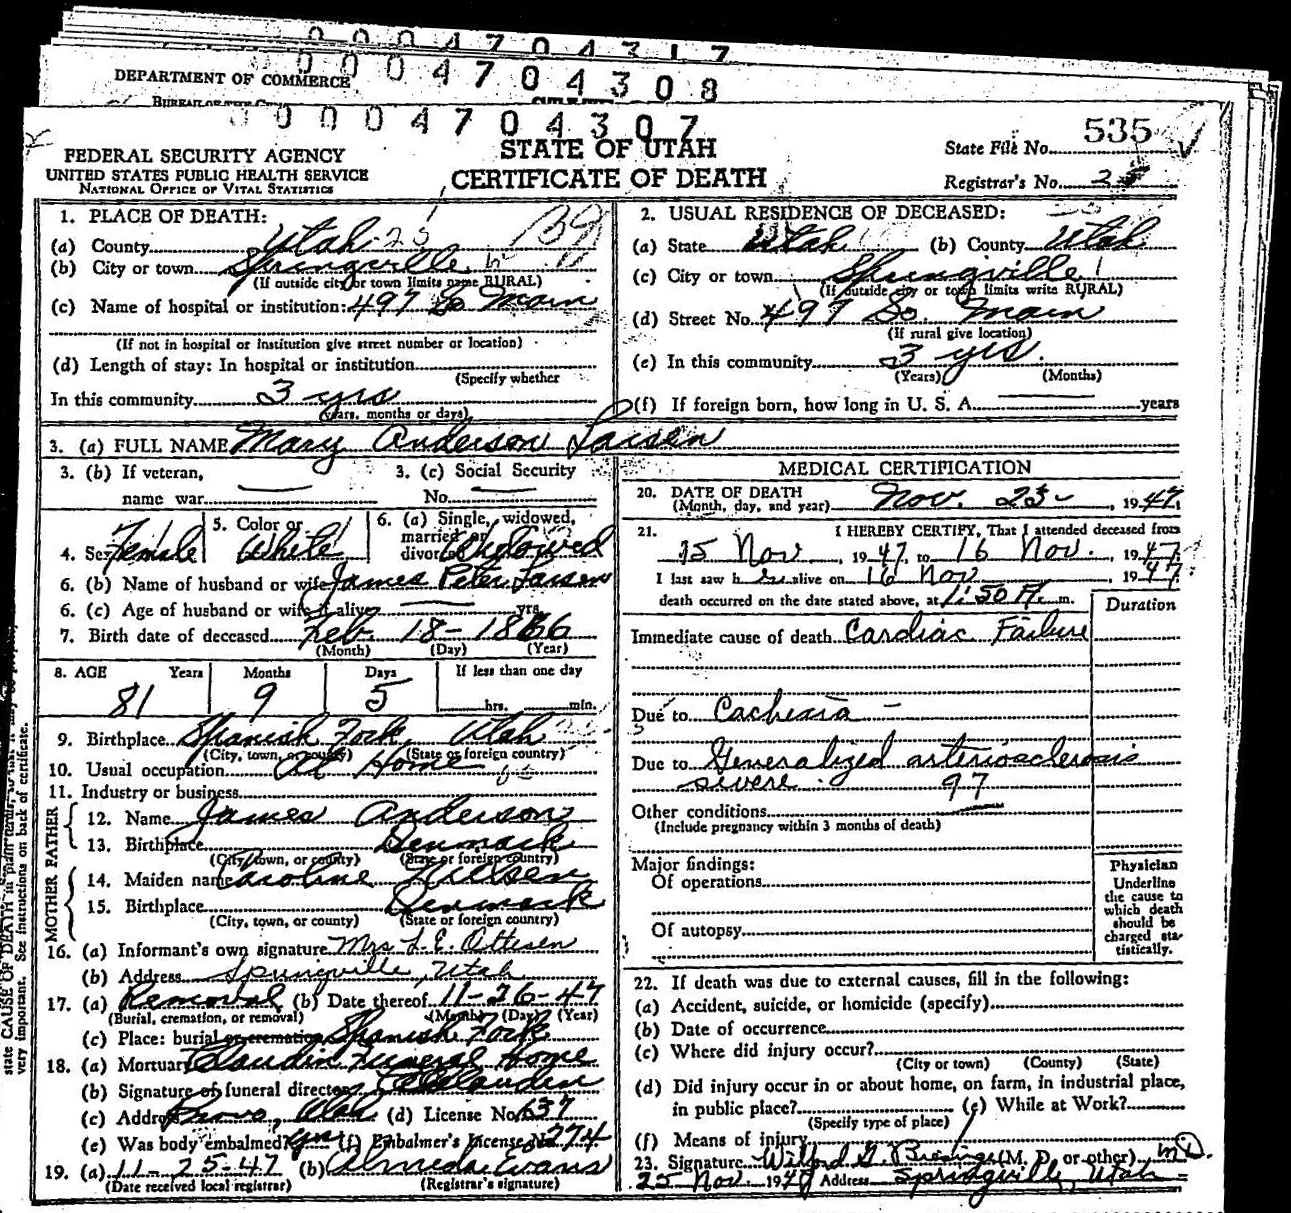 0 0 0 4 7 0 4 3 1 7
0 0 0 4 7 0 4 3 0 8
DEPARTMENT OF COMMERCE
0 0 0 4 7 0 4 3 0 7
FEDERAL SECURITY AGENCY
UNITED STATES PUBLIC HEALTH SERVICE
NATIONAL OFFICE OF VITAL STATISTICS
STATE OF UTAH
CERTIFICATE OF DEATH
State File No. 535
Registrar's No.
1. PLACE OF DEATH:
(a) County Utah 25
(b) City or town Springville
(If outside city or town limits name RURAL)
(c) Name of hospital or institution: 497 So Main
(If not in hospital or institution give street number or location)
(d) Length of stay: In hospital or institution
(Specify whether
In this community 3 yrs
years, months or days)
2. USUAL RESIDENCE OF DECEASED:
(a) State Utah (b) County Utah
(c) City or town Springville
(If outside city or town limits write RURAL)
(d) Street No. 497 So. Main
(If rural give location)
(e) In this community 3 yrs.
(Years) (Months)
(f) If foreign born, how long in U. S. A. years
3. (a) FULL NAME Mary Anderson Larsen
3. (b) If veteran,
name war
3. (c) Social Security
No.
4. Sex Female
5. Color or White
6. (a) Single, widowed,
married or
divorced Widowed
6. (b) Name of husband or wife James Peter Larsen
6. (c) Age of husband or wife if alive yrs.
7. Birth date of deceased Feb 18 - 1866
(Month) (Day) (Year)
8. AGE Years Months Days If less than one day
81 9 5 hrs. min.
9. Birthplace Spanish Fork, Utah
(City, town, or county) (State or foreign country)
10. Usual occupation At Home
11. Industry or business
FATHER
12. Name James Anderson
13. Birthplace Denmark
(City, town, or county) (State or foreign country)
MOTHER
14. Maiden name Caroline Nielsen
15. Birthplace Denmark
(City, town, or county) (State or foreign country)
16. (a) Informant's own signature Mrs L. E. Ottesen
(b) Address Springville, Utah
17. (a) Removal (b) Date thereof 11-26-47
(Burial, cremation, or removal) (Month) (Day) (Year)
(c) Place: burial or cremation Spanish Fork
18. (a) Mortuary Claudin Funeral Home
(b) Signature of funeral director Claudin
(c) Address Provo, Utah (d) License No. 637
(e) Was body embalmed? yes (f) Embalmer's License No. 274
19. (a) 11-25-47 (b) Almeda Evans
(Date received local registrar) (Registrar's signature)
MEDICAL CERTIFICATION
20. DATE OF DEATH
(Month, day, and year) Nov. 23-, 1947
21. I HEREBY CERTIFY, That I attended deceased from
15 Nov, 1947, to 16 Nov., 1947
I last saw her alive on 16 Nov 1947
death occurred on the date stated above, at 1:50 P. m.
Duration
Immediate cause of death Cardiac Failure
Due to Cachexia -
Due to Generalized arteriosclerosis
severe. 97
Other conditions
(Include pregnancy within 3 months of death)
Major findings:
Of operations
Of autopsy
Physician
Underline
the cause to
which death
should be
charged sta-
tistically.
22. If death was due to external causes, fill in the following:
(a) Accident, suicide, or homicide (specify)
(b) Date of occurrence
(c) Where did injury occur?
(City or town) (County) (State)
(d) Did injury occur in or about home, on farm, in industrial place,
in public place? (e) While at Work?
(Specify type of place)
(f) Means of injury
23. Signature Wilford G. (M. D. or other) M.D.
25 Nov. 1947 Address Springville, Utah
state CAUSE OF DEATH in plain terms, so that it may be properly
very important. See instructions on back of certificate.